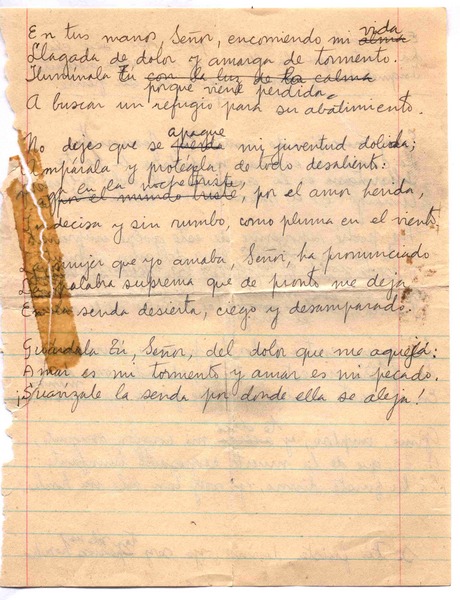 En tus manos, Señor, encomiendo mi alma vida
Llagada de dolor y amarga de tormento.
Ilumínala tú con la luz de la calma porque viene perdida
A buscar un refugio para su abatimiento.
No dejes que se pierda apague mi juventud dolida;
Ampárala y protégela de todo desaliento:
por el mundo triste en la noche triste, por el amor herida,
Indecisa y sin rumbo, como pluma en el viento.
La mujer que yo amaba, Señor, ha pronunciado
La palabra suprema que de pronto me deja
En una senda desierta, ciego y desamparado.
Guárdala Tú, Señor, del dolor que me aqueja:
Amar es mi tormento y amar es mi pecado.
¡Suavízale la senda por donde ella se aleja!